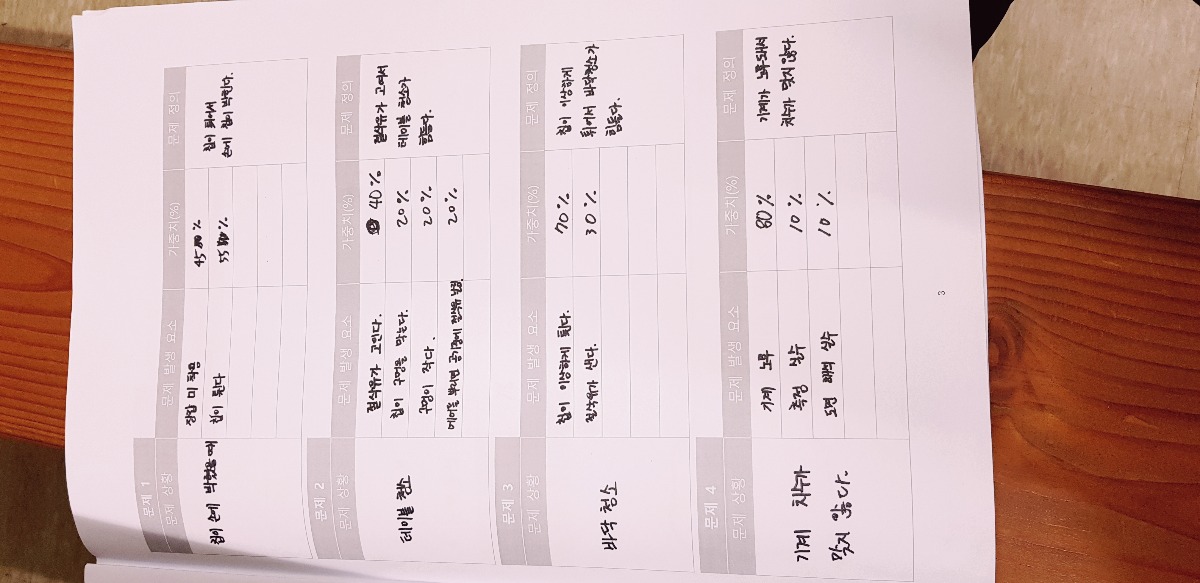 문제 1
문제 상황 문제 발생 요소 가중치(%) 문제 정의
칩이 손에 박혔을 때
장갑 미 착용 45%
칩이 튄다 55%
칩이 튀어서
손에 칩이 박힌다.
문제 2
문제 상황 문제 발생 요소 가중치(%) 문제 정의
테이블 청소
절삭유가 고인다. 40%
칩이 구멍을 막는다. 20%
구멍이 작다. 20%
에어를 부니면 공기중에 절삭유 날림 20%
절삭유가 고여서
테이블 청소가
힘들다.
문제 3
문제 상황 문제 발생 요소 가중치(%) 문제 정의
바닥 청소
칩이 이상하게 튄다. 70%
절삭유가 샌다. 30%
칩이 이상하게
튀어서 바닥청소가
힘들다.
문제 4
문제 상황 문제 발생 요소 가중치(%) 문제 정의
기계 치수가
맞지 않다.
기계 노후 80%
측정 실수 10%
도면 해석 실수 10%
기계가 노후돼서
치수가 맞지 않다.
3